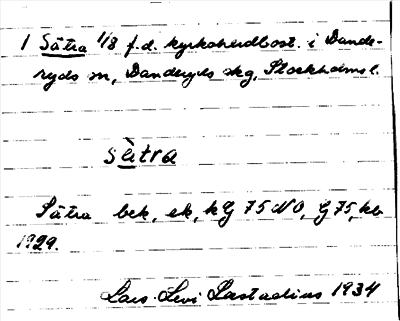 1 Sätra 1/8 f.d. kyrkoherdbost. i Dande-
ryds sn, Danderyds skg, Stockholms l.
sètra
Sätra bek, ek, kG 75 NO, G 75, kb
1929.
Lars-Levi Læstadius 1934